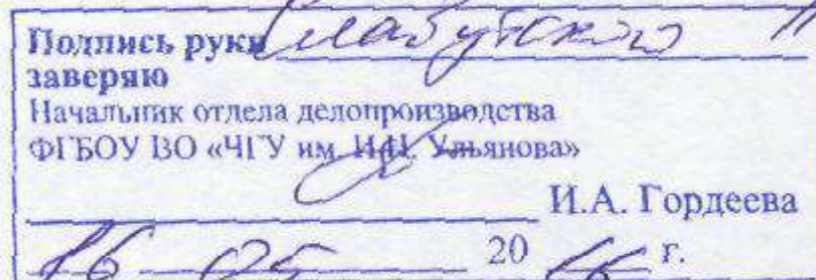 Подпись руки Славутского
заверяю
Начальник отдела делопроизводства
ФГБОУ ВО «ЧГУ им. И.Н. Ульянова»
И.А. Гордеева
16 05 20 16 г.